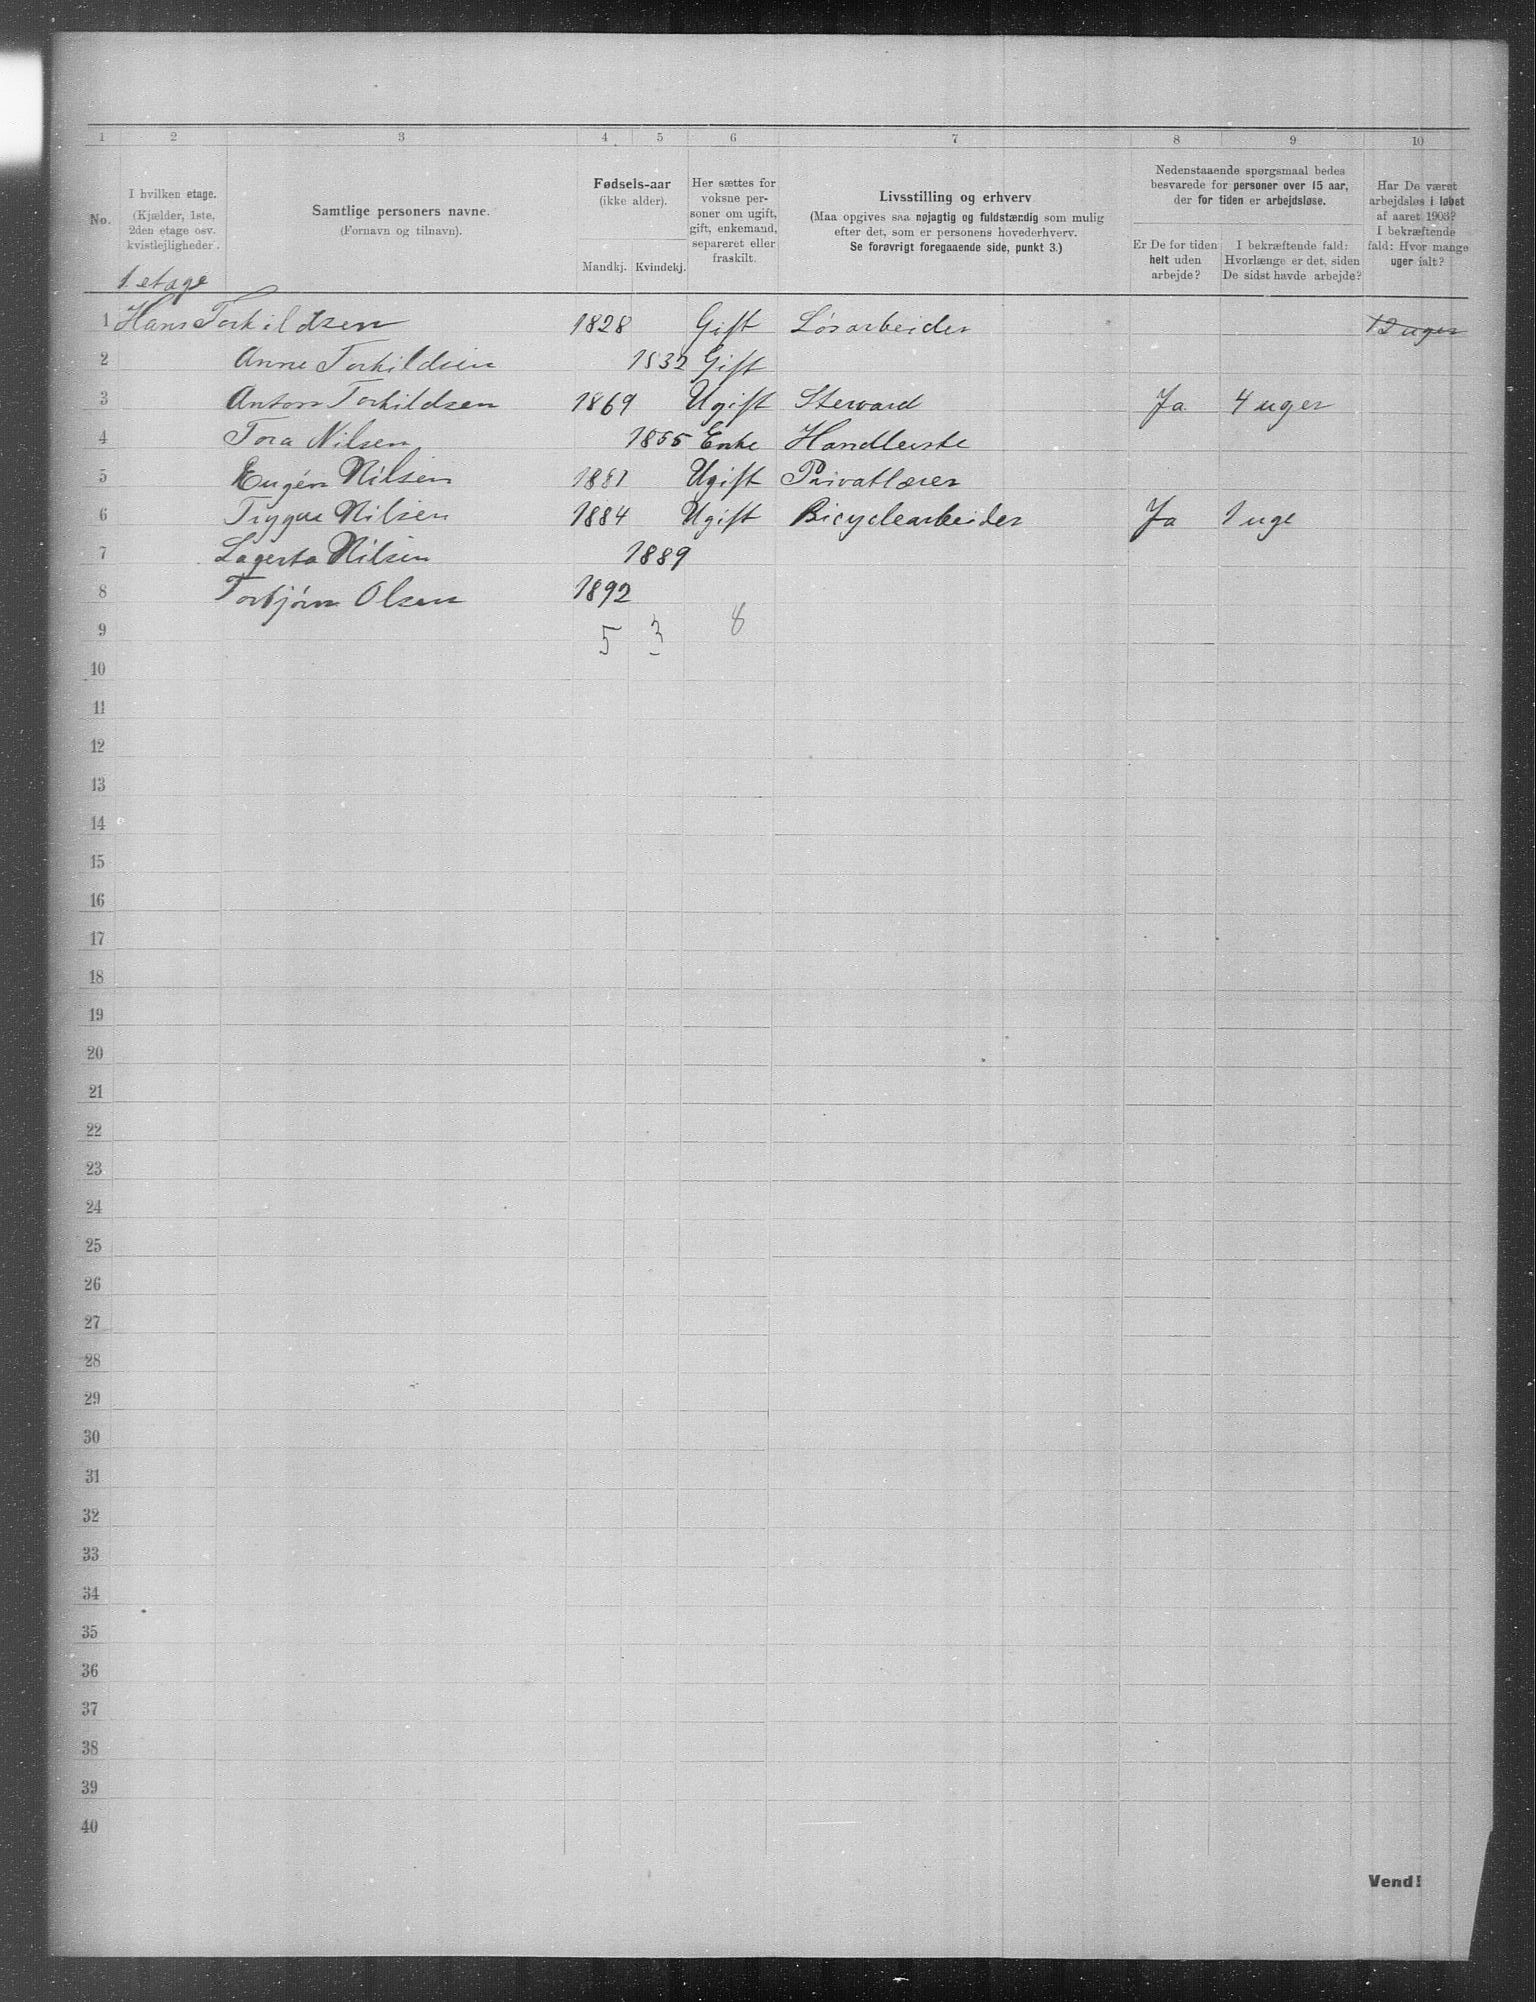 1 2 3 4 5 6 7 8 9 10
No.
I hvilken etage.
(Kjælder, 1ste,
2den etage osv.
kvistlejligheder.
Samtlige personers navne.
(Fornavn og tilnavn).
Fødsels-aar
(ikke alder).
Mandkj. Kvindekj.
Her sættes for
voksne per-
soner om ugift,
gift, enkemand,
separeret eller
fraskilt.
Livsstilling og erhverv
(Maa opgives saa nøjagtig og fuldstændig som mulig
efter det, som er personens hovederhverv.
Se forøvrigt foregaaende side, punkt 3.)
Nedenstaaende spørgsmaal bedes
besvarede for personer over 15 aar,
der for tiden er arbejdsløse.
Er De for tiden
helt uden
arbejde?
I bekræftende fald:
Hvorlænge er det, siden
De sidst havde arbejde?
Har De været
arbejdsløs i løbet
af aaret 1903?
I bekræftende
fald: Hvor mange
uger ialt?
1. etage
1 Hans Torkildsen 1828 Gift Løsarbeider 12 uger
2 Anne Torkildsen 1832 Gift
3 Anton Torkildsen 1869 Ugift Steward Ja 4 uger
4 Tora Nilsen 1855 Enke Handlerske
5 Eugén Nilsen 1881 Ugift Privatlærer
6 Trygve Nilsen 1884 Ugift Bicyclearbeider Ja 1 uge
7 Lagerta Nilsen 1889
8 Torbjørn Olsen 1892
9 5 3 8
10
11
12
13
14
15
16
17
18
19
20
21
22
23
24
25
26
27
28
29
30
31
32
33
34
35
36
37
38
39
40
Vend!